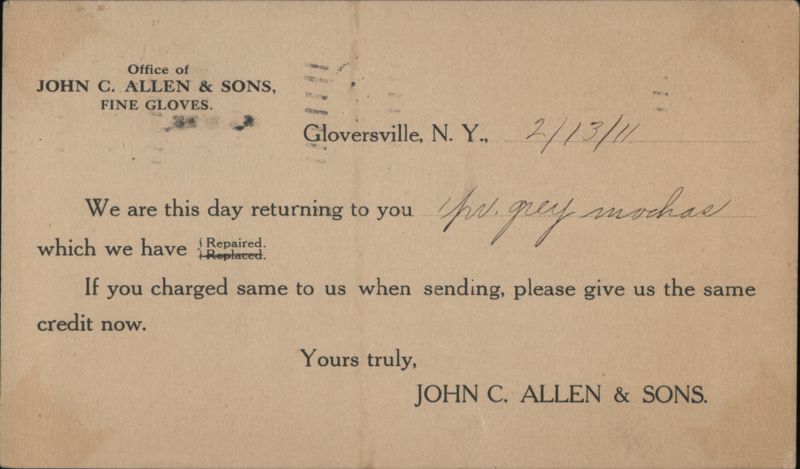 Office of
JOHN C. ALLEN & SONS,
FINE GLOVES.
Gloversville, N. Y., 2/13/11
We are this day returning to you 1 pr. grey mochas
which we have { Repaired.
Replaced.
If you charged same to us when sending, please give us the same
credit now.
Yours truly,
JOHN C. ALLEN & SONS.